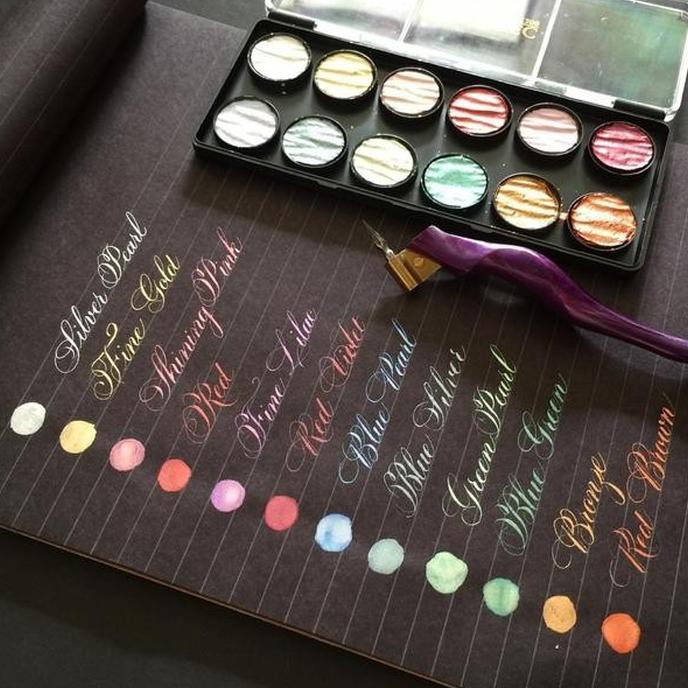 Silver Pearl
Fine Gold
Shining Pink
Red
Fine Lilac
Red Violet
Blue Pearl
Blue Silver
Green Pearl
Blue Green
Bronze
Red Brown